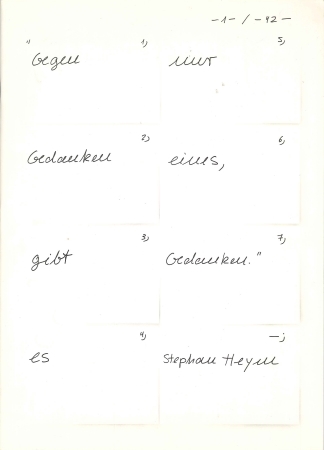 -1- / -42-
" 1,
Gegen
2,
Gedanken
3,
gibt
4,
es
5,
nur
6,
eines,
7,
Gedanken."
—;
Stephan Heym